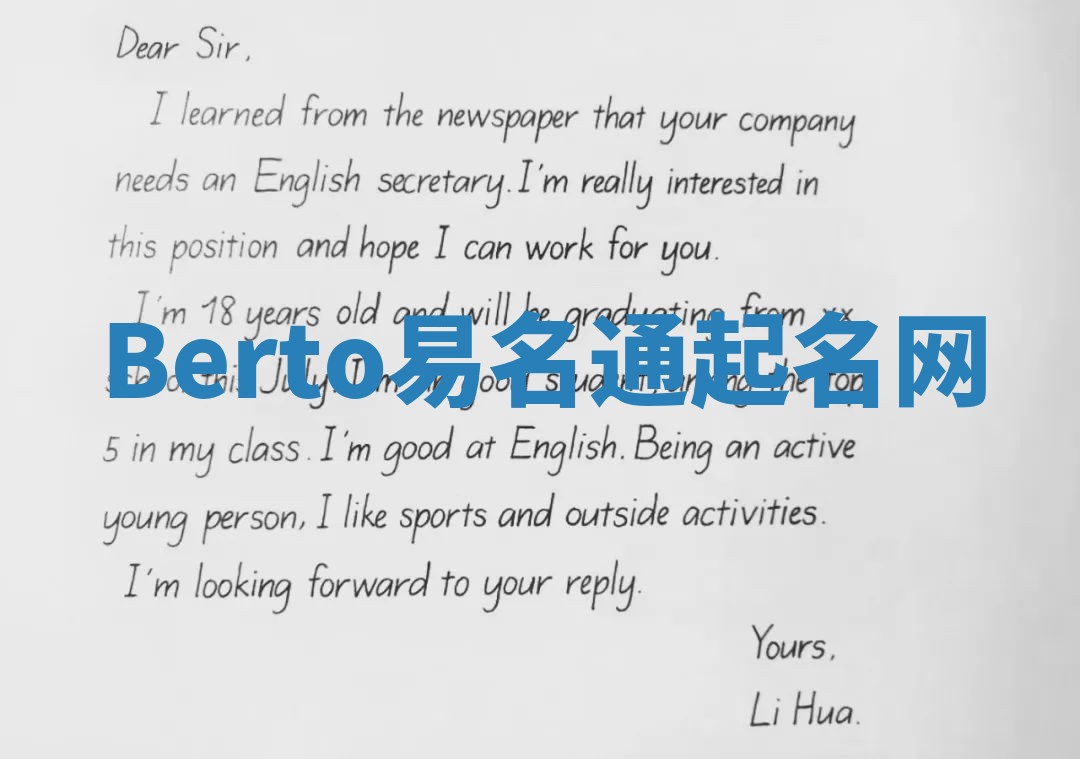 Dear Sir,
I learned from the newspaper that your company
needs an English secretary. I'm really interested in
this position and hope I can work for you.
I'm 18 years old and will be graduating from xx
Berto易名通起名网
school this July. I'm a good student, among the top
5 in my class. I'm good at English. Being an active
young person, I like sports and outside activities.
I'm looking forward to your reply.
Yours,
Li Hua.